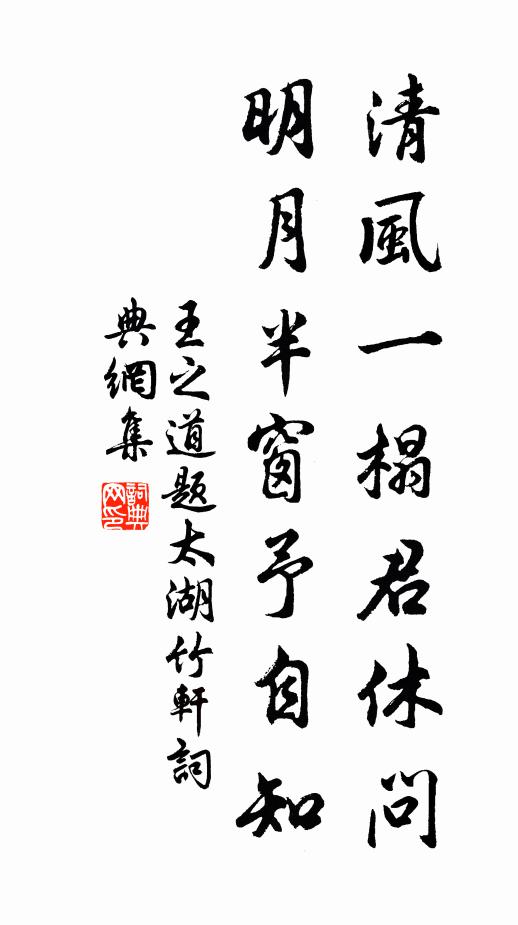 清風一榻君休問
明月半窗予自知
王之道題太湖竹軒詞
典網集
詞典网印